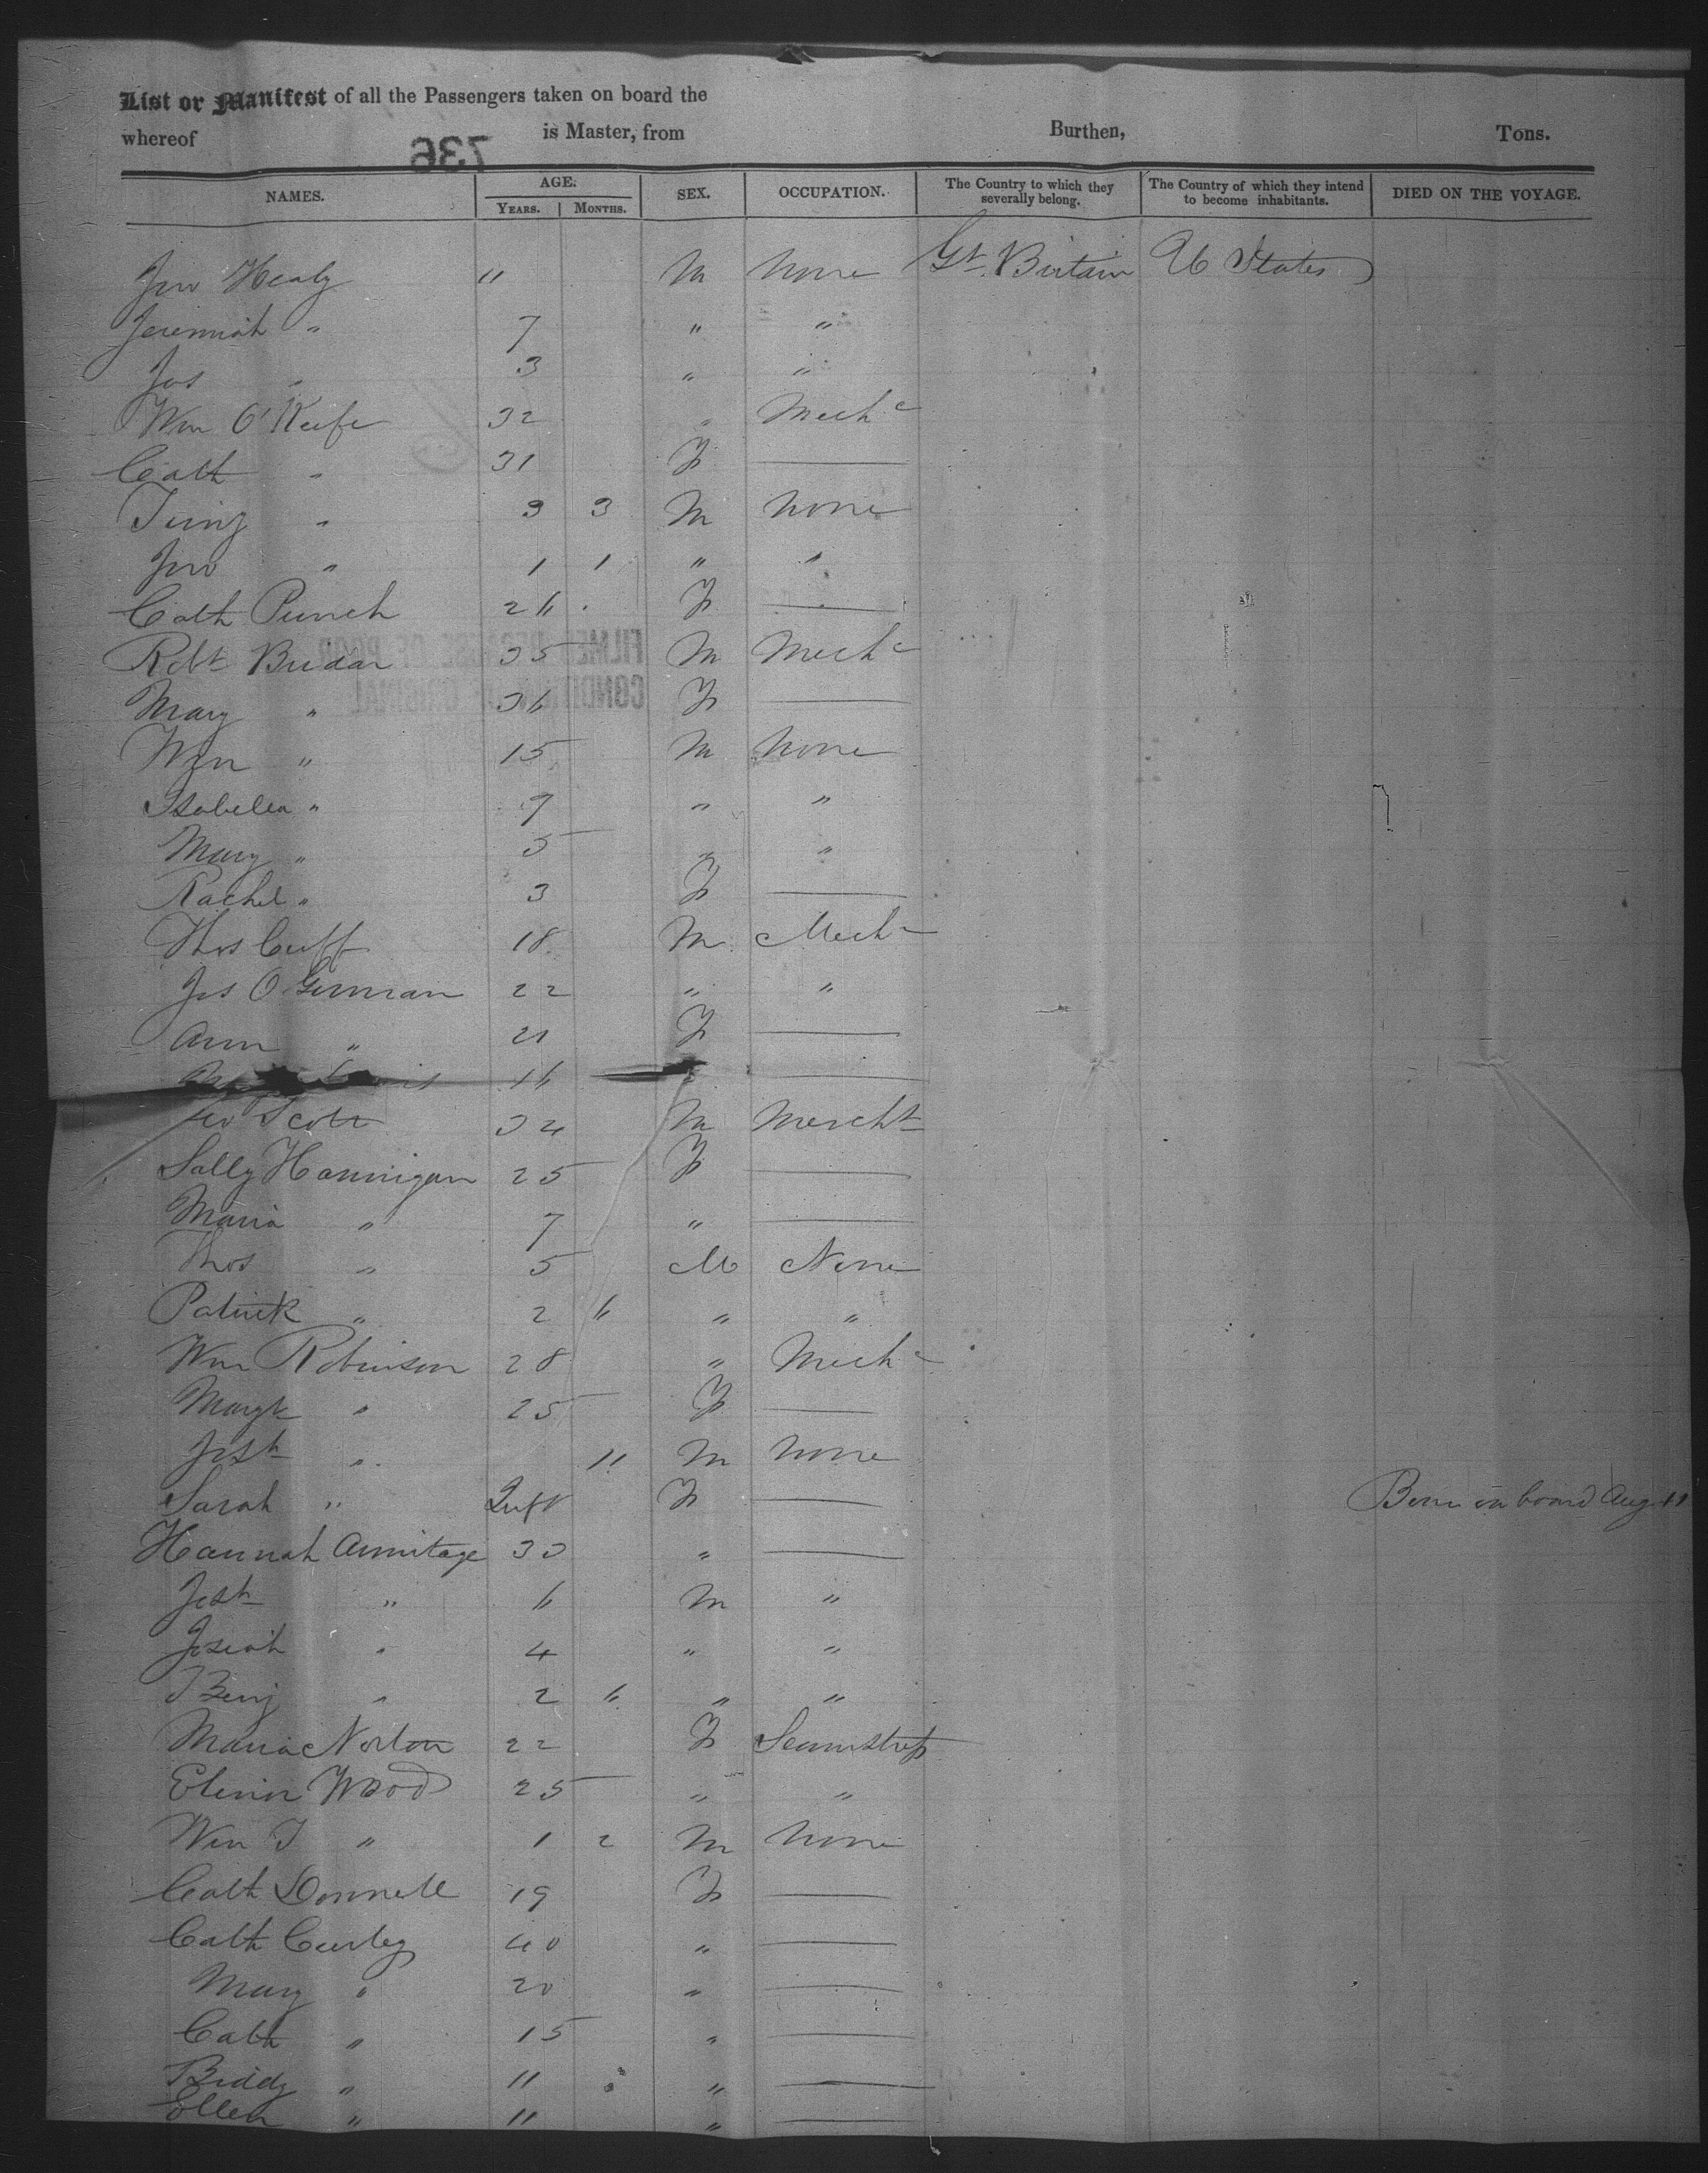 List or Manifest of all the Passengers taken on board the
whereof is Master, from Burthen, Tons.
736
NAMES. AGE. SEX. OCCUPATION. The Country to which they severally belong. The Country of which they intend to become inhabitants. DIED ON THE VOYAGE.
YEARS. MONTHS.
Jno Healy 11 M None Gt. Britain U States
Jeremiah " 7 " "
Jas " 3 " "
Wm O'Keefe 32 " Mechc
Cath " 31 F
" 3 3 M None
Jno " 1 1 " "
Cath Punch 26 F
Robt 35 M Mechc
FILMED BECAUSE OF POOR
CONDITION OF ORIGINAL
Mary " 36 F
Wm " 15 M None
Isabella " 9 " "
Mary " 5 " "
Rachel " 3 F
Thos Cuff 18 M Mechc
Jas O Gorman 22 " "
Ann " 21 F
16
Scott 34 M Mercht
Sally Hannigan 25 F
Maria " 7 "
Thos " 5 M None
Patrick " 2 6 " "
Wm Robinson 28 " Mechc
Margt " 25 F
Josh " 11 M None
Sarah " Inft F Born on board Aug 11
Hannah Armitage 30 "
Josh " 6 M "
Josiah " 4 " "
Benj " 2 6 " "
Maria Norton 22 F Seamstress
Elenor Wood 25 " "
Wm T " 1 2 M None
Cath Donnell 19 F
Cath Curley 40 "
Mary " 20 "
Cath " 15 "
Biddy " 11 "
Ellen " 11 "